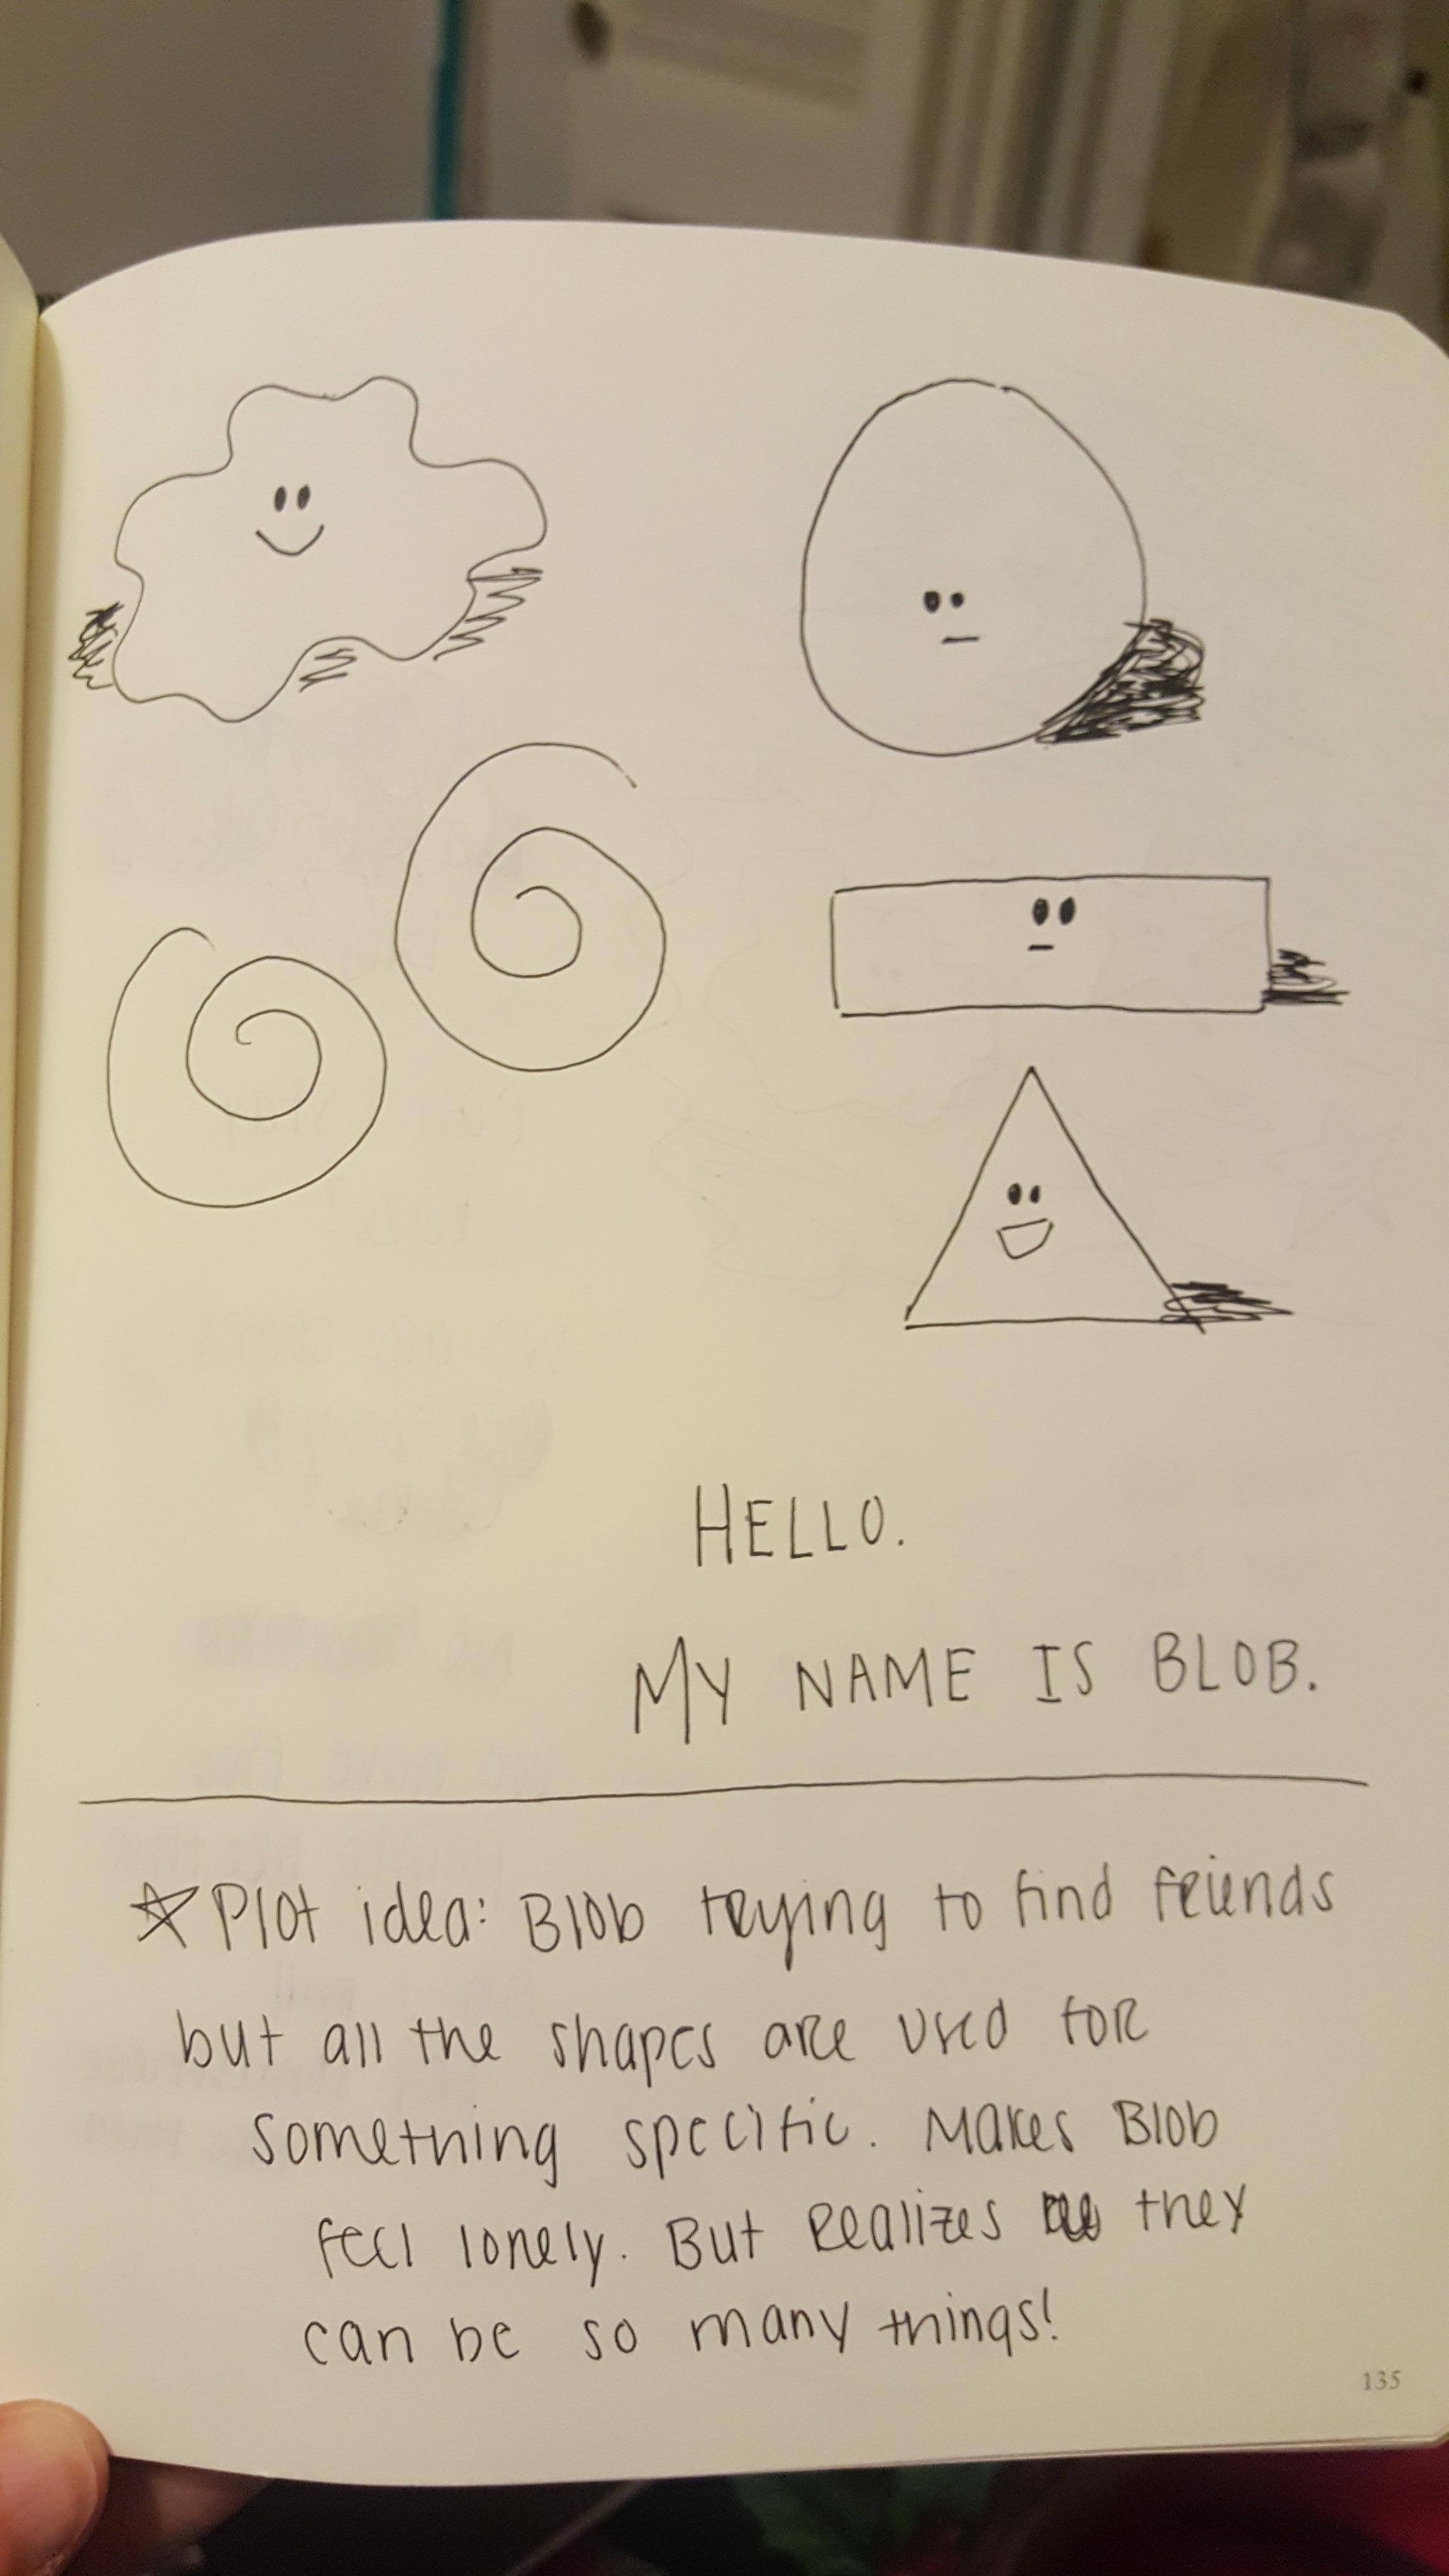 HELLO.
MY NAME IS BLOB.
Plot idea: Blob trying to find friends
but all the shapes are used for
something specific. Makes Blob
feel lonely. But Realizes they
can be so many things!
135